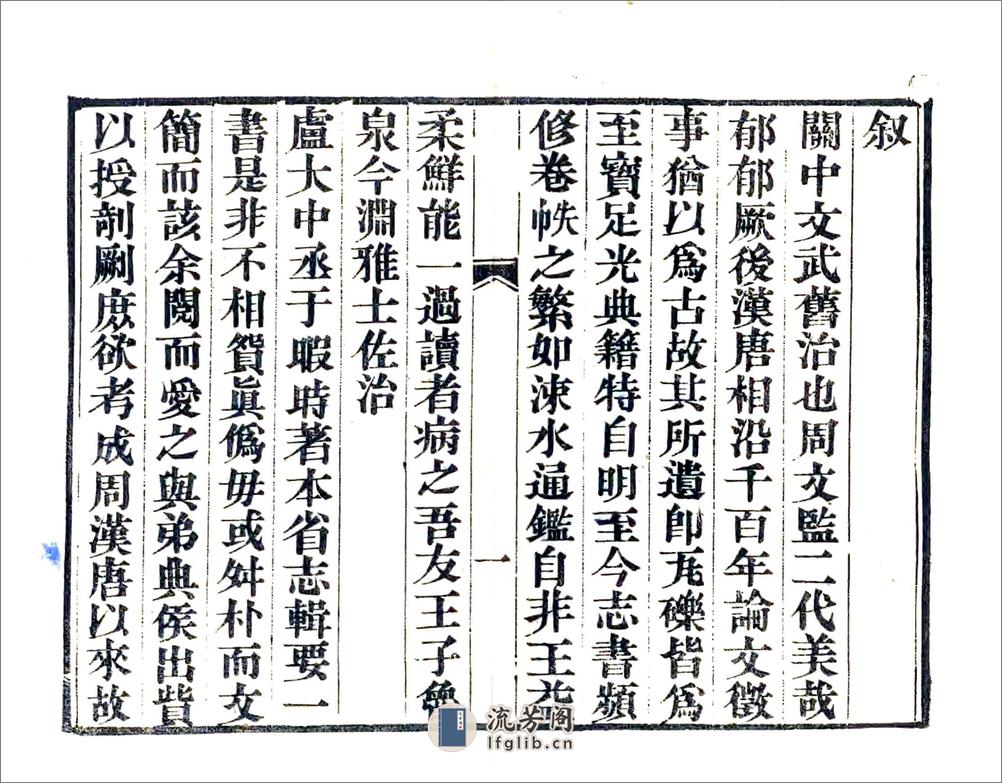 叙
關中文武舊治也周文監二代美哉
郁郁厥後漢唐相沿千百年論文徵
事猶以爲古故其所遺卽瓦礫皆爲
至寶足光典籍特自明至今志書頻
修卷帙之繁如涑水通鑑自非王益
柔鮮能一過讀者病之吾友王子
泉今淵雅士佐治
盧大中丞于暇時著本省志輯要一
書是非不相貿眞僞毋或舛朴而文
簡而該余閱而愛之與弟典侯出貲
以授剞劂庶欲考成周漢唐以來故
一
流芳阁
lfglib.cn